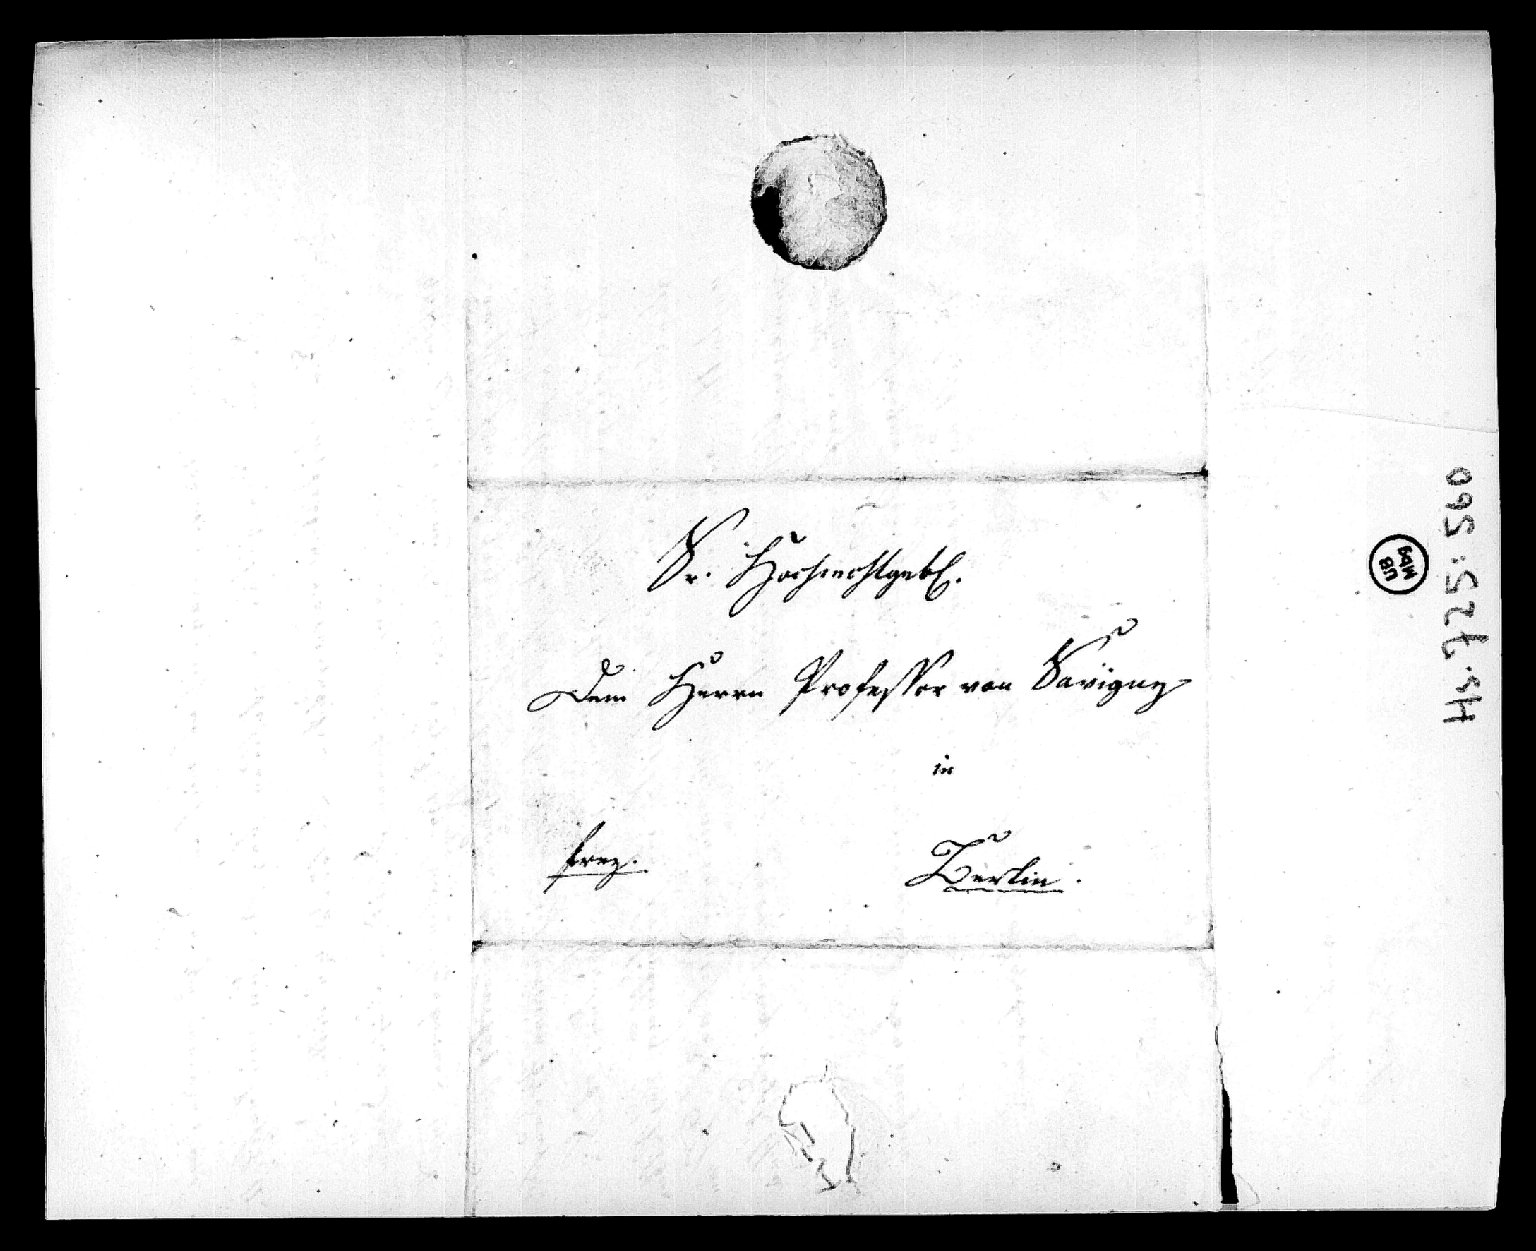 Sr. Hochwohlgeb.
Dem Herrn Professor von Savigny
in
frey.
Berlin.
Hs. 725: 560
UB
Mbg